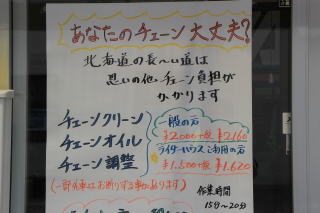 あなたのチェーン大丈夫?
北海道の長〜い道は
思いの他、チェーン負担が
かかります
チェーンクリーン
チェーンオイル
チェーン調整
一般の方
¥2000+税 ¥2160
ライダーハウスご利用の方
¥1.500+税 ¥1.620
(一部外車はお断りする事があります)
作業時間
15分〜20分